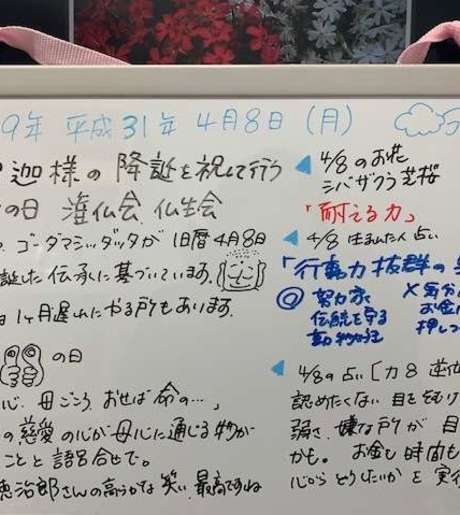 9年 平成31年 4月8日 (月)
迦様の 降誕を祝して行う
の日 灌仏会、仏生会
ゴーダマシッダッタが 旧暦4月8日
誕した伝承に基づいています。
は1ヶ月遅れにやる所もあります。
の日
心、母ごころ、おせば命の…」
の慈愛の心が母心に通じる物が
ことと語呂合せで。
治郎さんの高らかな笑い、最高ですね
4/8のお花
シバザクラ 芝桜
「耐える力」
4/8 生まれた人 占い
「行動力抜群の
◎ 努力家
伝統を守る
動物好
× 気分
お金
押しつ
4/8の占い [力8 逆位
認めたくない 目を
弱さ、嫌な所が 目
かも。 お金も時間も
心からどうしたいか を 実行